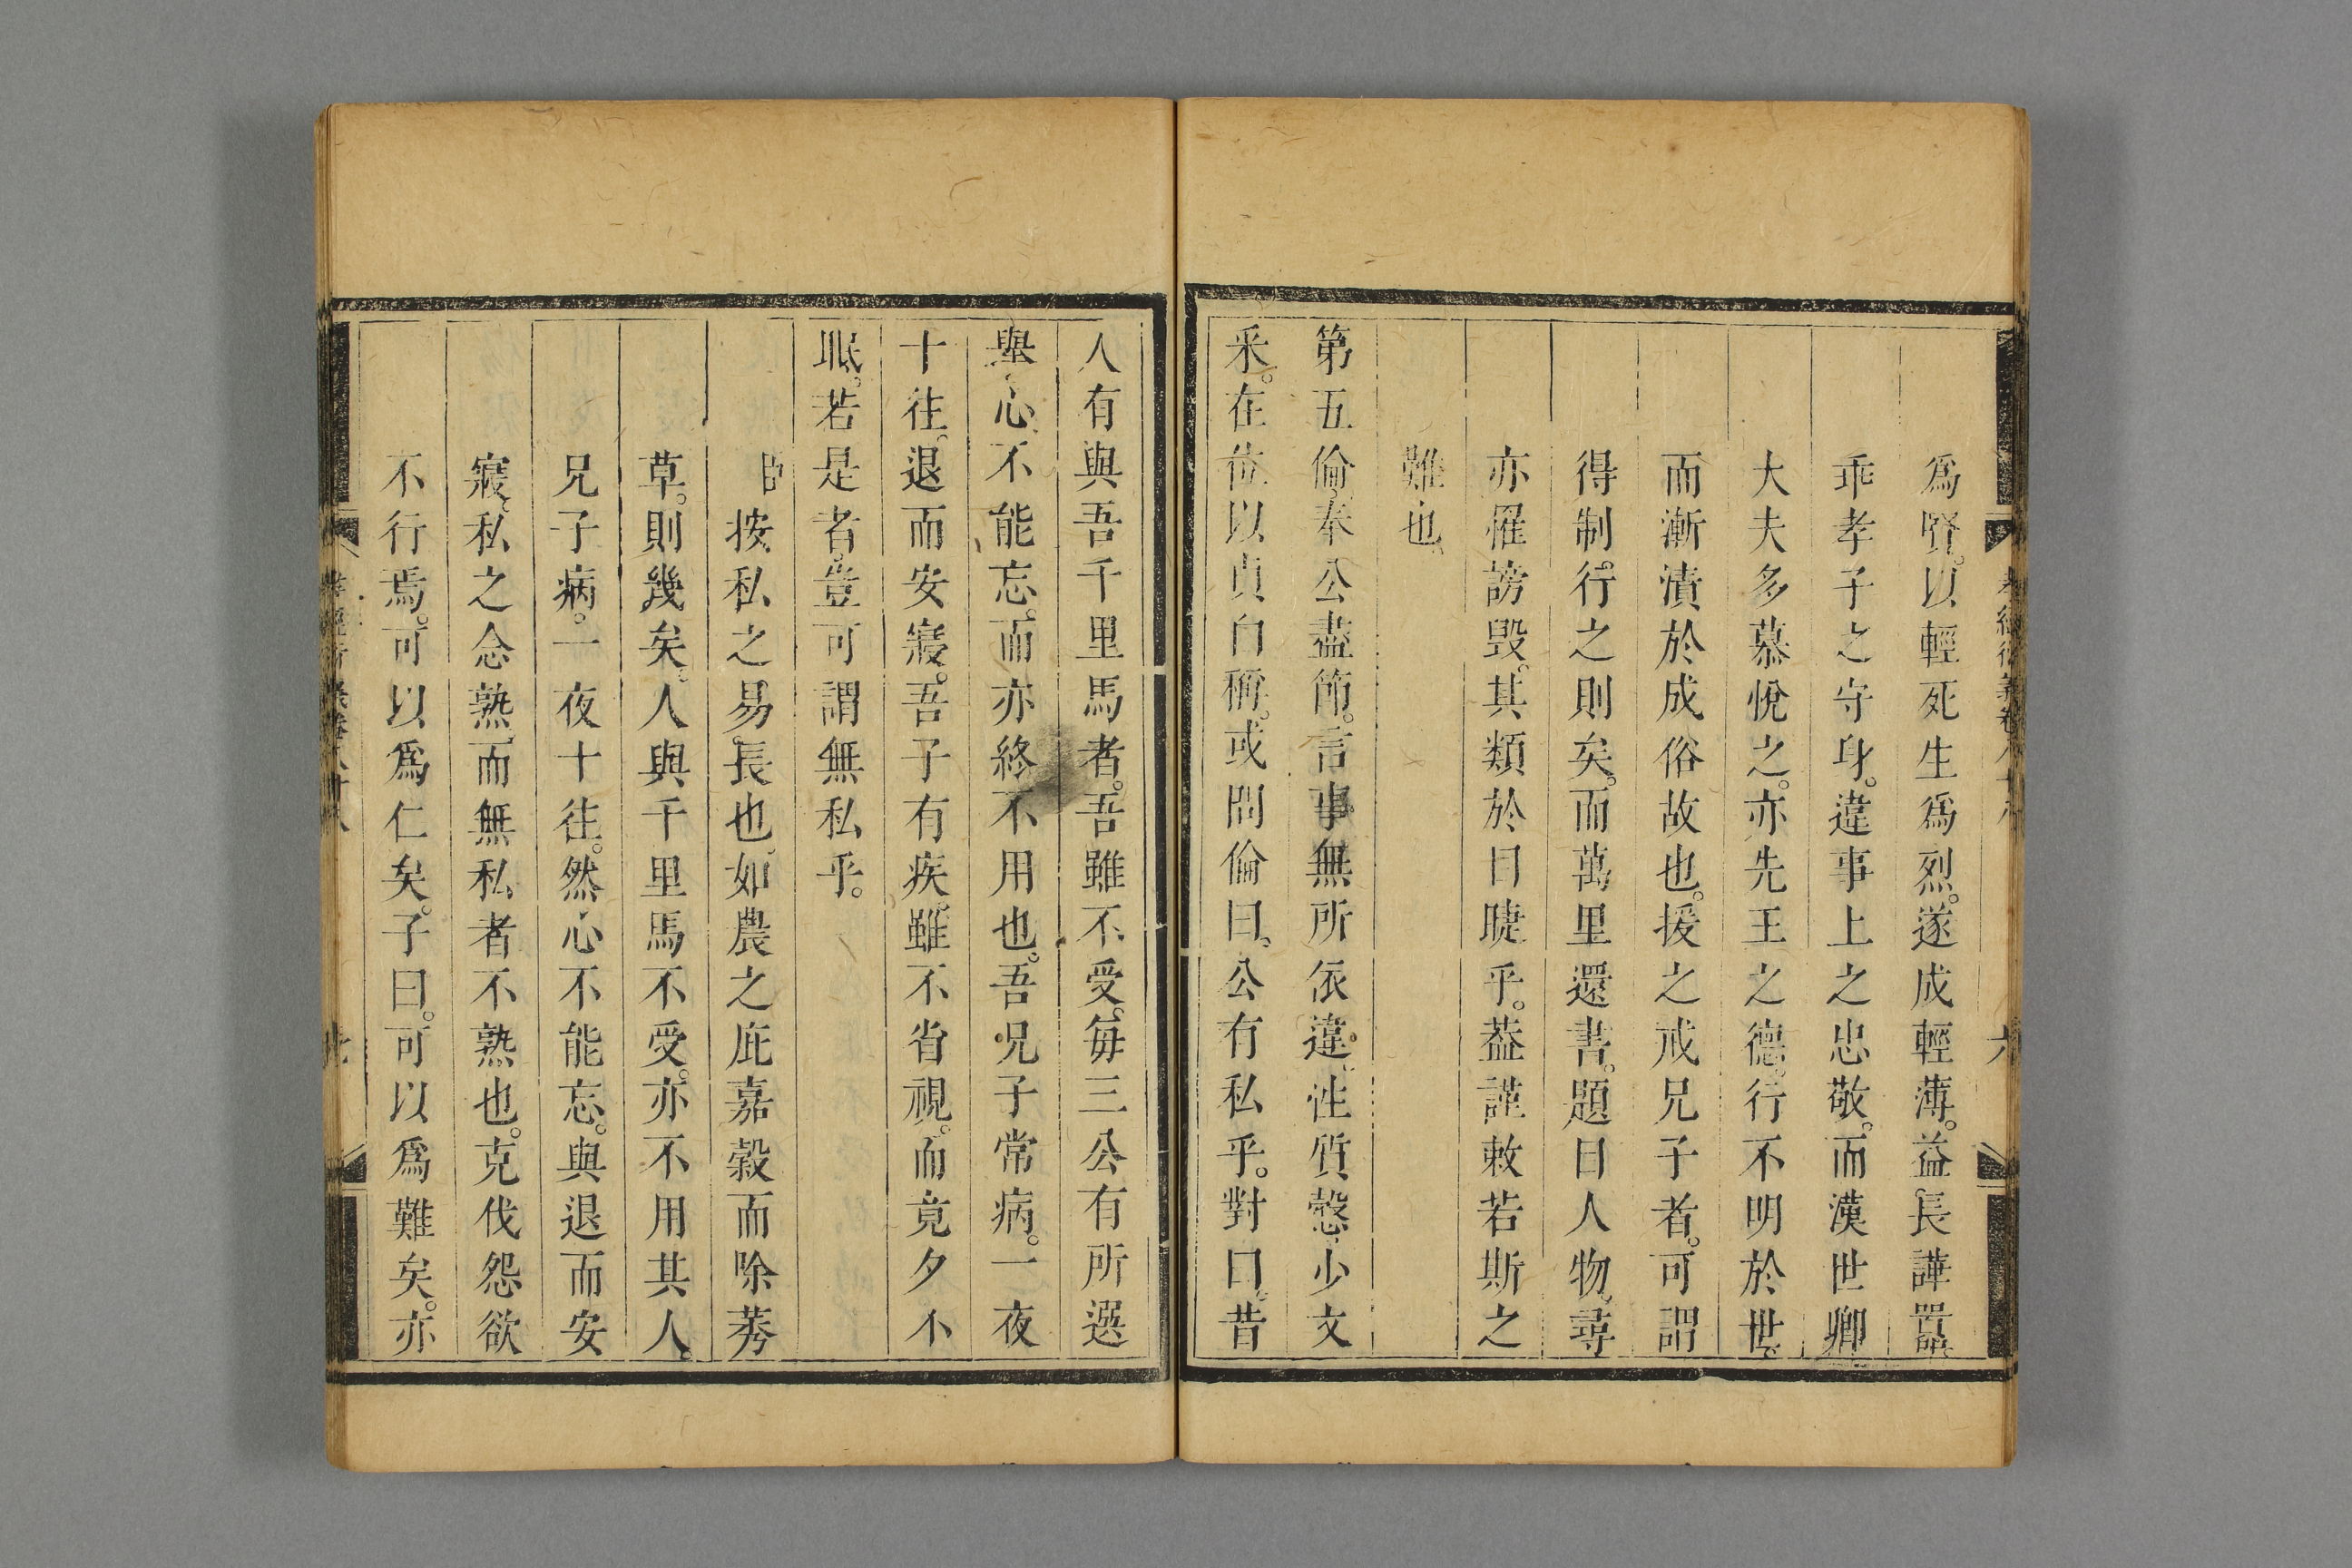 爲賢。以輕死生爲烈。遂成輕薄。益長譁囂。
乖孝子之守身。違事上之忠敬。而漢世卿
大夫多慕悅之。亦先王之德。行不明於世。
而漸漬於成俗故也。援之戒兄子者。可謂
得制。行之則矣。而萬里還書。題目人物。尋
亦罹謗毀。其類於目睫乎。葢謹敕若斯之
難也。
第五倫。奉公盡節。言事無所依違。性質慤。少文
采。在位以貞白稱。或問倫曰。公有私乎。對曰。昔
人有與吾千里馬者。吾雖不受。每三公有所選
舉。心不能忘。而亦終不用也。吾兄子常病。一夜
十往。退而安寢。吾子有疾。雖不省視。而竟夕不
眠。若是者。豈可謂無私乎。
臣按私之易。長也。如農之庇嘉穀而除莠
草。則幾矣。人與千里馬不受。亦不用其人。
兄子病。一夜十往。然心不能忘。與退而安
寢。私之念熟。而無私者不熟也。克伐怨欲
不行焉。可以爲仁矣。子曰。可以爲難矣。亦